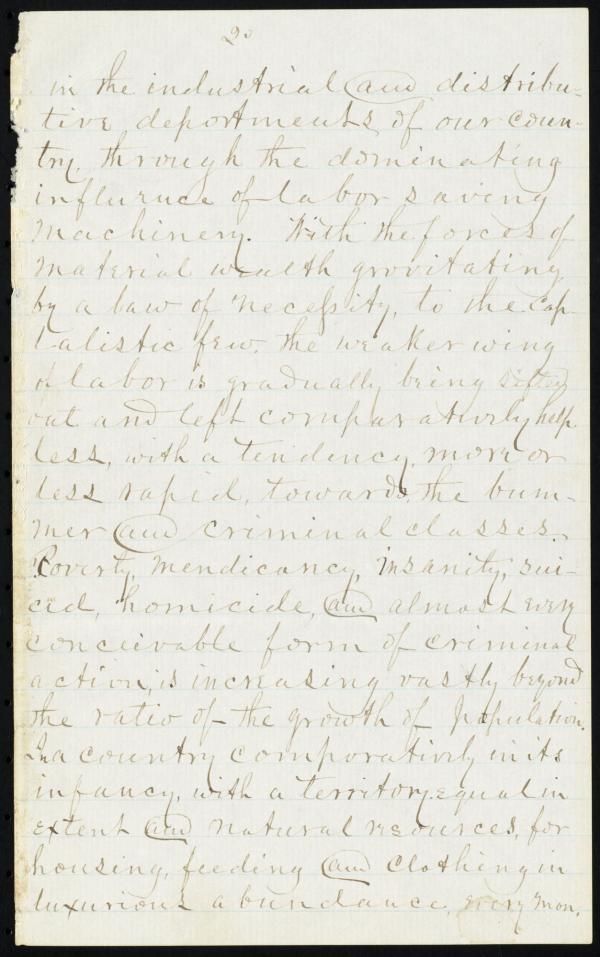 20
in the industrial and distribu-
tive departments of our coun-
try, through the dominating
influence of labor saving
machinery. With the forces of
material wealth gravitating,
by a law of necessity, to the Cap-
talistic few, the weaker wing
of labor is gradually being sifted
out and left comparatively help
less, with a tendency, more or
less rapid, towards, the bum-
mer and criminal classes.
Poverty, mendicancy, insanity, sui-
ced, homicide, and almost every
conceivable form of criminal
action, is increasing vastly beyond
the ratio of the growth of population.
In a country comparatively in its
infancy, with a territory equal in
extent and natural resources, for
housing, feeding and clothing in
luxurious abundance, every man,